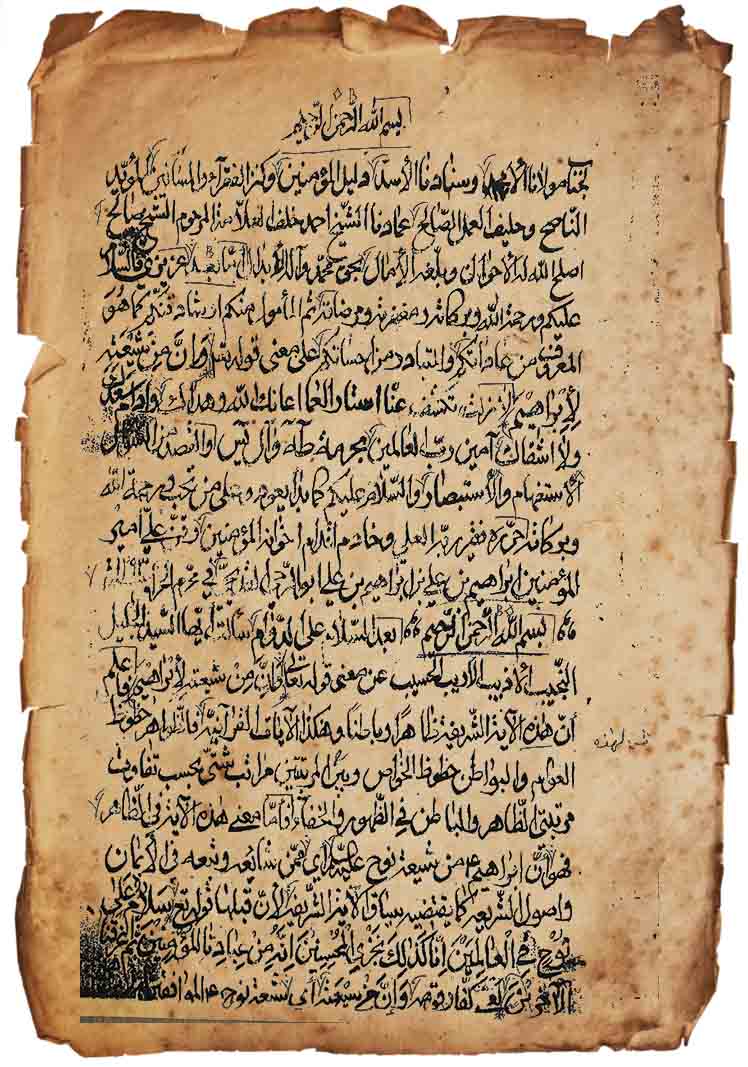 بسم الله الرحمن الرحيم
وسنادنا دليل المؤمنين وكنز الفقرآء والمساكين المؤيد
الناصح وحليف العمل الصالح عمادنا الشيخ احمد خلف العلامة المرحوم الشيخ صالح
اصلح الله له الاحوال وبلغه الآمال بحق محمد وآله اما بعد عزيزي فالسلام
عليكم ورحمة الله وبركاته ومغفرته ومرضاته ثم المأمول منكم كما هو
المعروف من عاداتكم والمتبادر من احسانكم على معنى قوله تع وَاِنَّ مِن شيعته
لإبراهيم عنا استار العما اعانك الله وهداك وادام سعدك
ولا اشقاك آمين رب العالمين بحرمة طه وآل يس والقصد السؤال
الاستفهام والاستبصار والسلام عليكم كما بدا يعود وعلى من تحب ورحمة الله
وبركاته حرره فقير ربه العلي وخادم اقدام اخوانه المؤمنين علي امير
المؤمنين ابراهيم بن علي بن ابراهيم بن علي في محرم الحرام
بسم الله الرحمن الرحيم بعد السلام على الدوام سألت ايها السيد الجليل
النجيب الأديب الحسيب عن معنى قوله تعالى وَاِنَّ مِن شيعته لإبراهيم فاعلم
أن هذه الآية الشريفة ظاهرا وباطنا وهكذا الآيات القرآنية فالظواهر حظوظ
العوام والبواطن حظوظ الخواص وبين المرتبتين مراتب شتى بحسب تفاوت
مرتبتي الظاهر والباطن في الظهور والخفاء فأما معنى هذه الآية في الظاهر
فهو أن ابراهيم ع من شيعة نوح عليه السلام أي ممن شايعه وتبعه في الإيمان
واصول الشريعة كما يقتضيه سياق الآية الشريفة لأن قبلها قوله تع سَلام على
نوح في العالمين اِنّا كذلك نجزي المحسنين اِنّه من عبادنا المؤمنين ثم اغرقنا
الآخرين كفار قومه وَاِنَّ مِن شيعته أي شيعة نوح ع